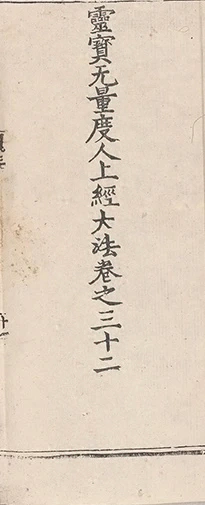 靈寶无量度人上經大法卷之三十二